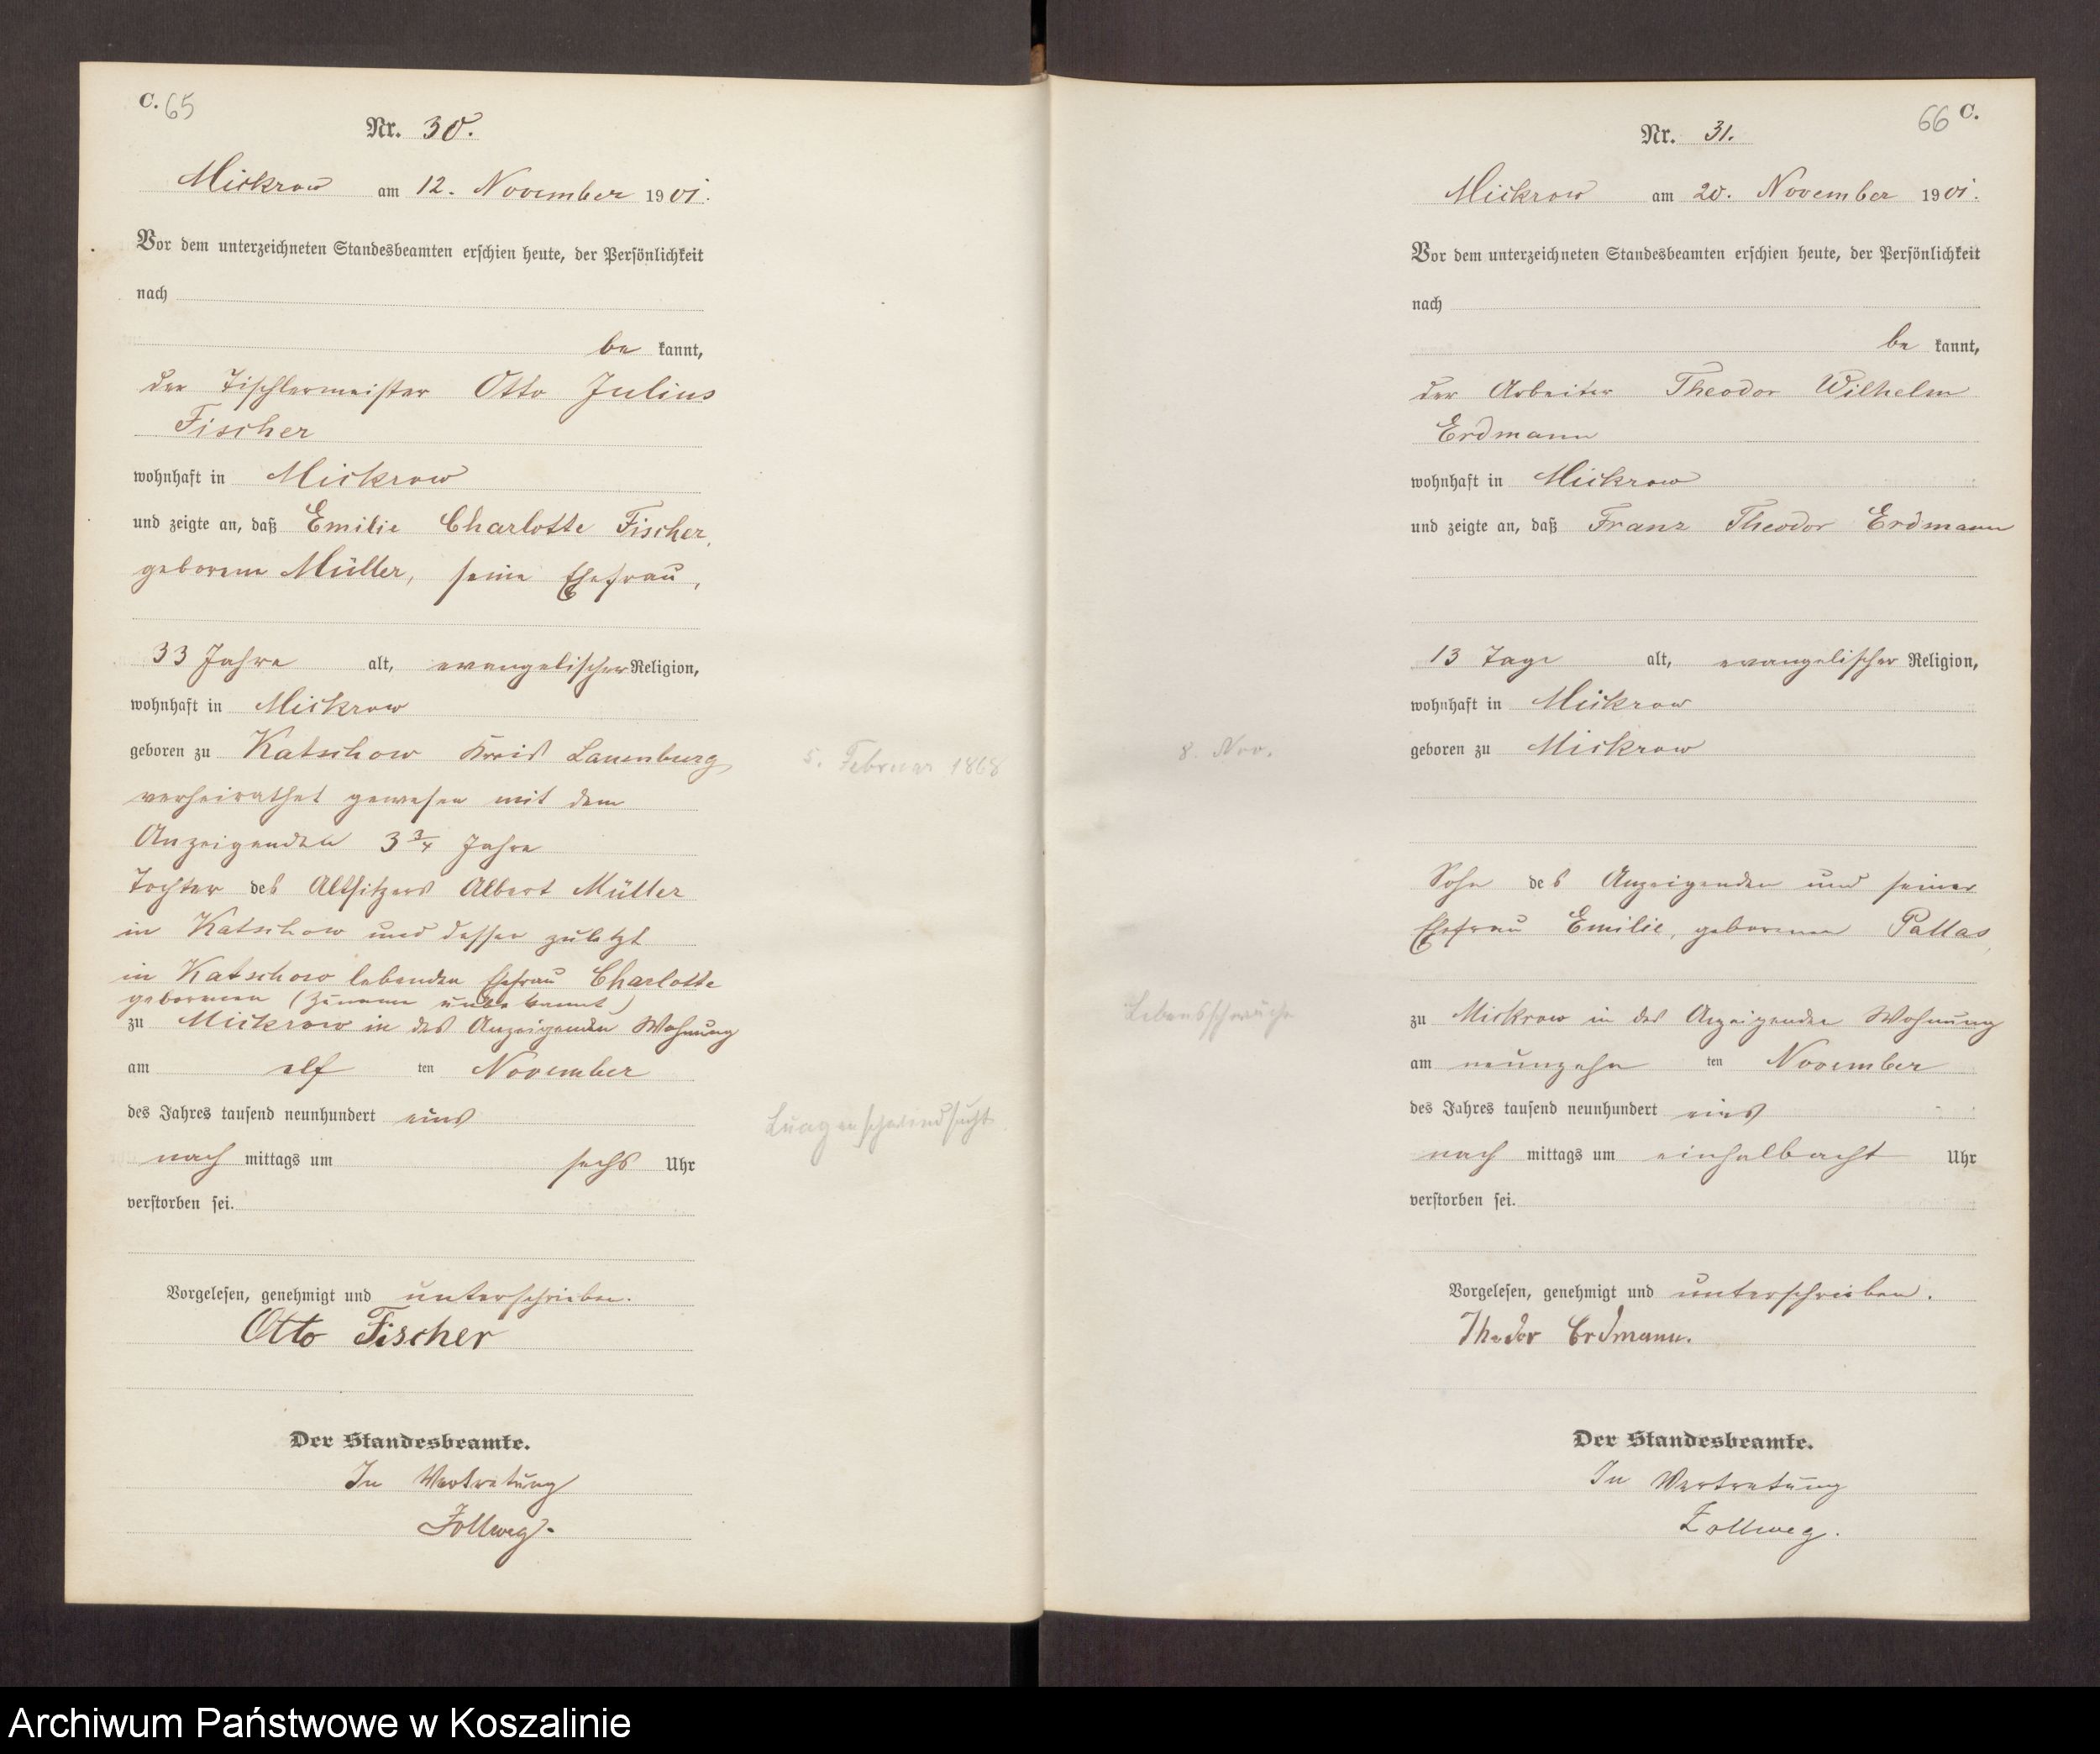 C. 65
Nr. 30.
Mickrow am 12. November 1901.
Vor dem unterzeichneten Standesbeamten erschien heute, der Persönlichkeit
nach
be kannt,
der Tischlermeister Otto Julius
Fischer
wohnhaft in Mickrow
und zeigte an, daß Emilie Charlotte Fischer,
geborene Müller, seine Ehefrau,
33 Jahre alt, evangelischer Religion,
wohnhaft in Mickrow
geboren zu Katschow Kreis Lauenburg,
5. Februar 1868
verheirathet gewesen mit dem
Anzeigenden 3 3/4 Jahre
Tochter des Altsitzers Albert Müller
in Katschow und dessen zuletzt
in Katschow lebenden Ehefrau Charlotte
geborenen (Zuname unbekannt)
zu Mickrow in des Anzeigenden Wohnung
am elf ten November
des Jahres tausend neunhundert eins
Lungenschwindsucht
nach mittags um sechs Uhr
verstorben sei.
Vorgelesen, genehmigt und unterschrieben.
Otto Fischer
Der Standesbeamte.
In Vertretung
Zollweg.
66 C.
Nr. 31.
Mickrow am 20. November 1901.
Vor dem unterzeichneten Standesbeamten erschien heute, der Persönlichkeit
nach
be kannt,
der Arbeiter Theodor Wilhelm
Erdmann
wohnhaft in Mickrow
und zeigte an, daß Franz Theodor Erdmann
13 Tage alt, evangelischer Religion,
wohnhaft in Mickrow
8. Nov.
geboren zu Mickrow
Sohn des Anzeigenden und seiner
Ehefrau Emilie, geborenen Pallas,
Lebensschwäche
zu Mickrow in des Anzeigenden Wohnung
am neunzehn ten November
des Jahres tausend neunhundert eins
nach mittags um einhalbacht Uhr
verstorben sei.
Vorgelesen, genehmigt und unterschrieben.
Theodor Erdmann.
Der Standesbeamte.
In Vertretung
Zollweg.
Archiwum Państwowe w Koszalinie